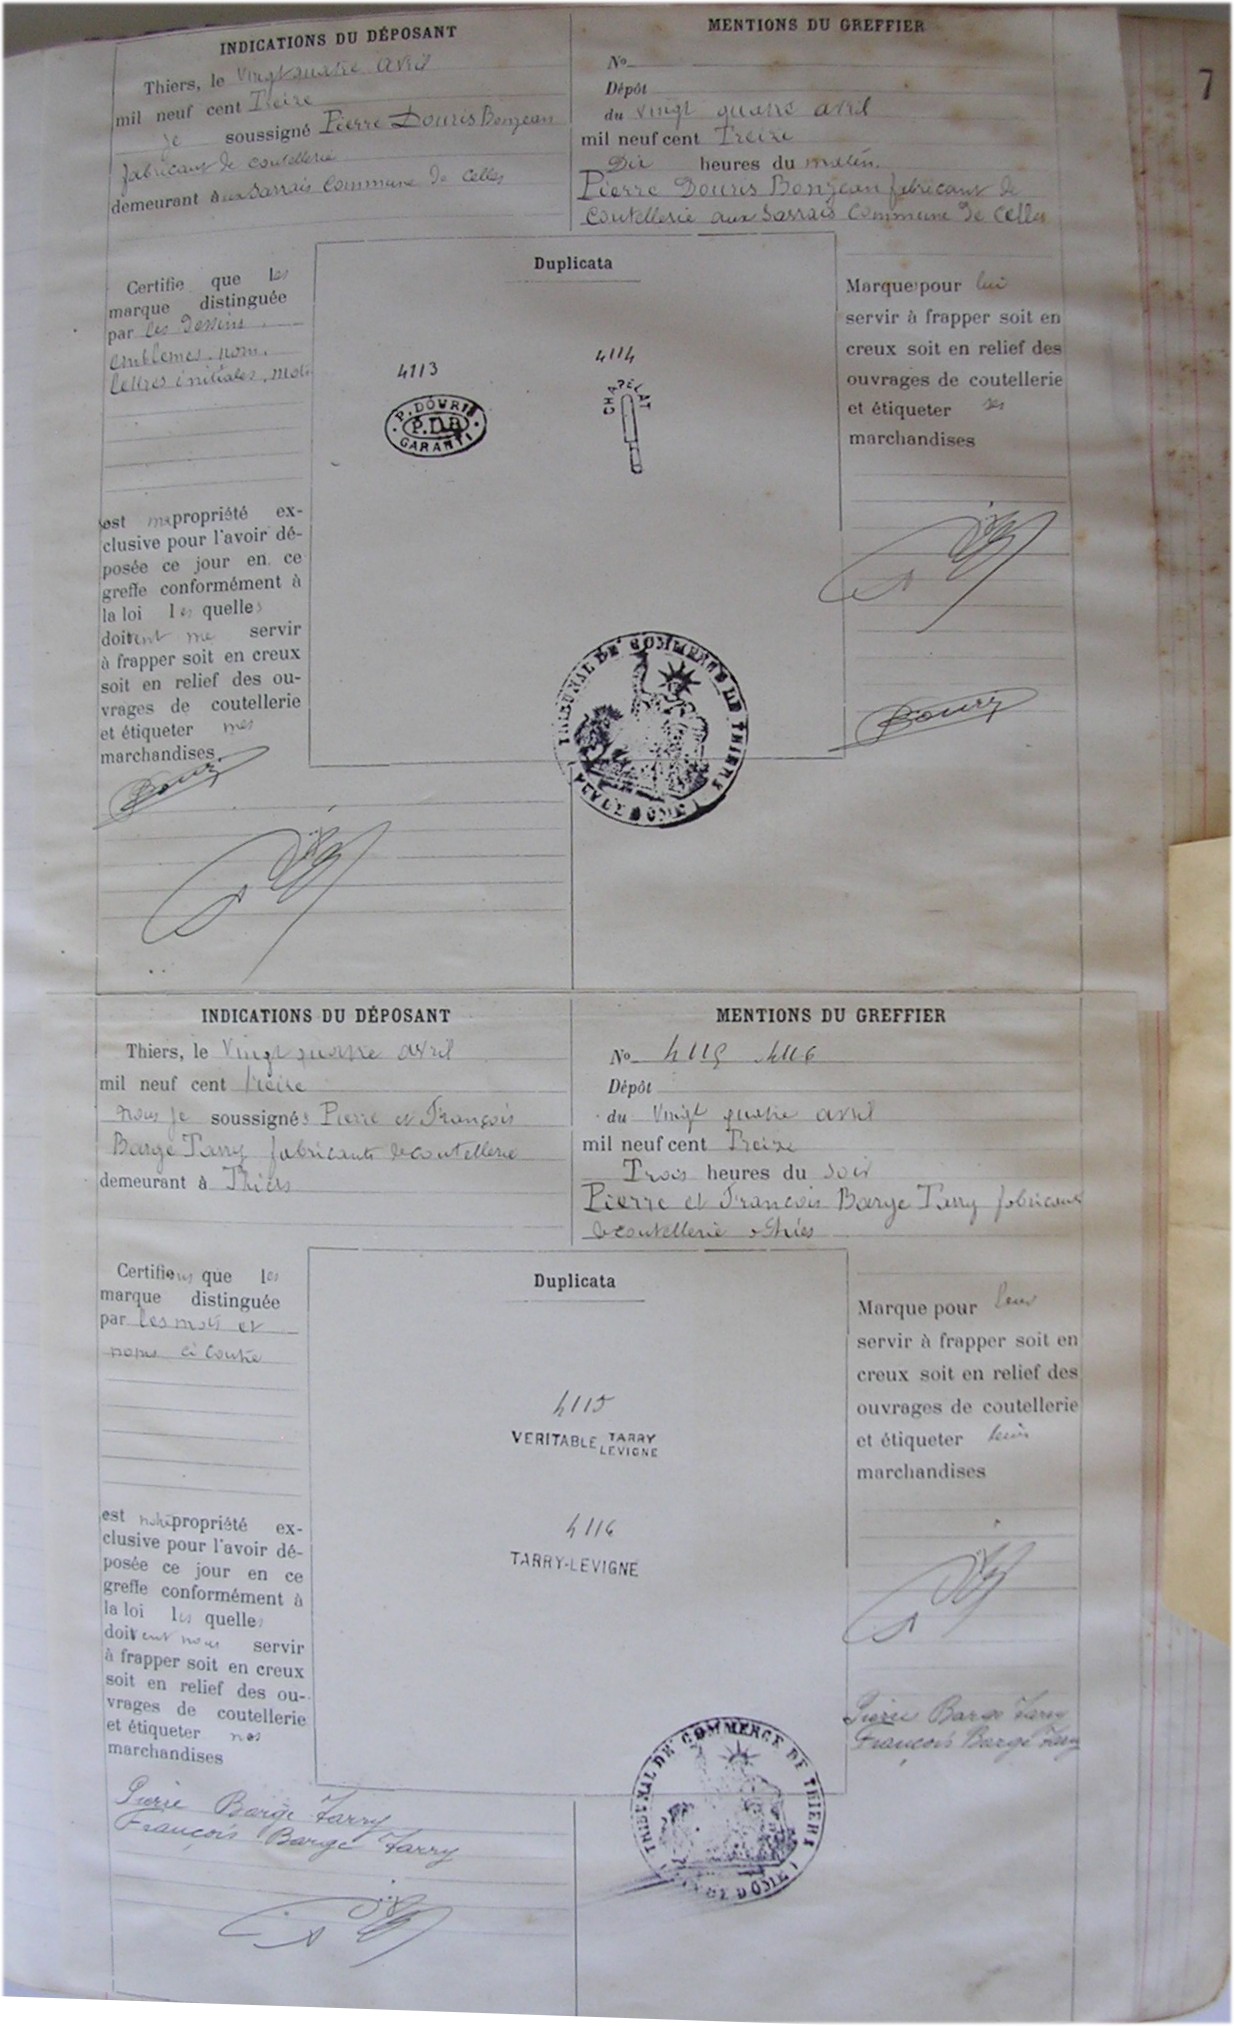 7
INDICATIONS DU DÉPOSANT
Thiers, le vingt quatre avril
mil neuf cent Treize
je soussigné Pierre Douris Bonjean
fabricant de coutellerie
demeurant à aux Sarrais Commune de Celles
MENTIONS DU GREFFIER
No
Dépôt
du vingt quatre avril
mil neuf cent Treize
Dix heures du matin.
Pierre Douris Bonjean fabricant de
coutellerie aux Sarrais Commune de Celles
Certifie que les
marque distinguée
par les dessins,
emblêmes, nom,
lettres initiales, mots
est ma propriété ex-
clusive pour l'avoir dé-
posée ce jour en ce
greffe conformément à
la loi les quelles
doivent me servir
à frapper soit en creux
soit en relief des ou-
vrages de coutellerie
et étiqueter mes
marchandises
Duplicata
4113
P. DOURIS
P.D.B
GARANTI
4114
CHAPELAT
Marque pour lui
servir à frapper soit en
creux soit en relief des
ouvrages de coutellerie
et étiqueter ses
marchandises
TRIBUNAL DE COMMERCE DE THIERS
(PUY DE DOME)
INDICATIONS DU DÉPOSANT
Thiers, le vingt quatre avril
mil neuf cent treize
nous je soussignés Pierre et François
Barge Tarry fabricants de coutellerie
demeurant à Thiers
MENTIONS DU GREFFIER
No 4115 4116
Dépôt
du vingt quatre avril
mil neuf cent Treize
Trois heures du soir
Pierre et François Barge Tarry fabricants
de coutellerie à Thiers
Certifions que les
marque distinguée
par les mots et
noms ci contre
est notre propriété ex-
clusive pour l'avoir dé-
posée ce jour en ce
greffe conformément à
la loi les quelles
doivent nous servir
à frapper soit en creux
soit en relief des ou-
vrages de coutellerie
et étiqueter nos
marchandises
Duplicata
4115
VERITABLE TARRY
LEVIGNE
4116
TARRY-LEVIGNE
Marque pour leur
servir à frapper soit en
creux soit en relief des
ouvrages de coutellerie
et étiqueter leurs
marchandises
Pierre Barge Tarry
François Barge Tarry
TRIBUNAL DE COMMERCE DE THIERS
(PUY DE DOME)
Pierre Barge Tarry
François Barge Tarry